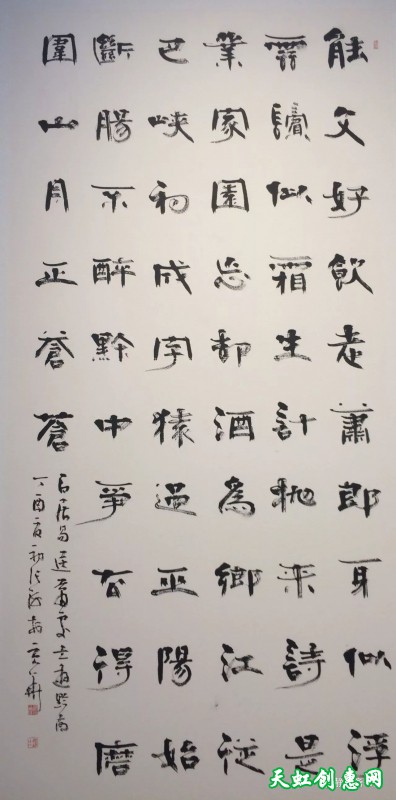 能文好飲老蕭郎身似浮
雲鬢似霜生計抛来詩是
業家園忘卻酒為鄉江從
巴峽初成字猿過巫陽始
斷腸不醉黔中爭去得磨
圍山月正蒼蒼
白居易送蕭處士遊黔南
丁酉夏初
天虹创惠网